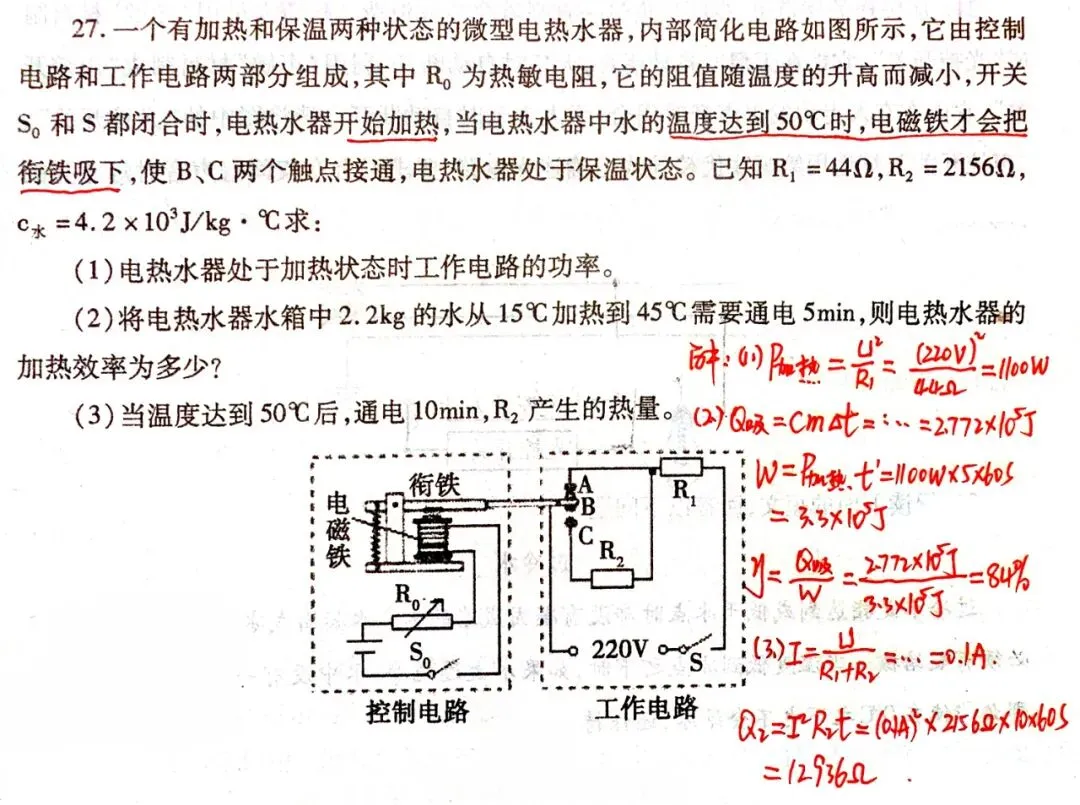 27. 一个有加热和保温两种状态的微型电热水器,内部简化电路如图所示,它由控制
电路和工作电路两部分组成,其中 R₀ 为热敏电阻,它的阻值随温度的升高而减小,开关
S₀ 和 S 都闭合时,电热水器开始加热,当电热水器中水的温度达到50℃时,电磁铁才会把
衔铁吸下,使 B、C 两个触点接通,电热水器处于保温状态。已知 R₁ =44Ω,R₂ =2156Ω,
c水 =4.2×10³J/kg·℃求:
(1)电热水器处于加热状态时工作电路的功率。
(2)将电热水器水箱中2.2kg的水从15℃加热到45℃需要通电5min,则电热水器的
加热效率为多少?
(3)当温度达到50℃后,通电10min,R₂ 产生的热量。
解:(1)P加热=U²/R₁=(220V)²/44Ω=1100W
(2)Q吸=cmΔt=…=2.772×10⁵J
W=P加热t'=1100W×5×60S
=3.3×10⁵J
η=Q吸/W=2.772×10⁵J/3.3×10⁵J=84%
(3)I=U/R₁+R₂=…=0.1A.
Q₂=I²R₂t=(0.1A)²×2156Ω×10×60S
=12936Ω
电磁铁
衔铁
R₀
S₀
控制电路
A
B
C
R₁
R₂
220V
S
工作电路